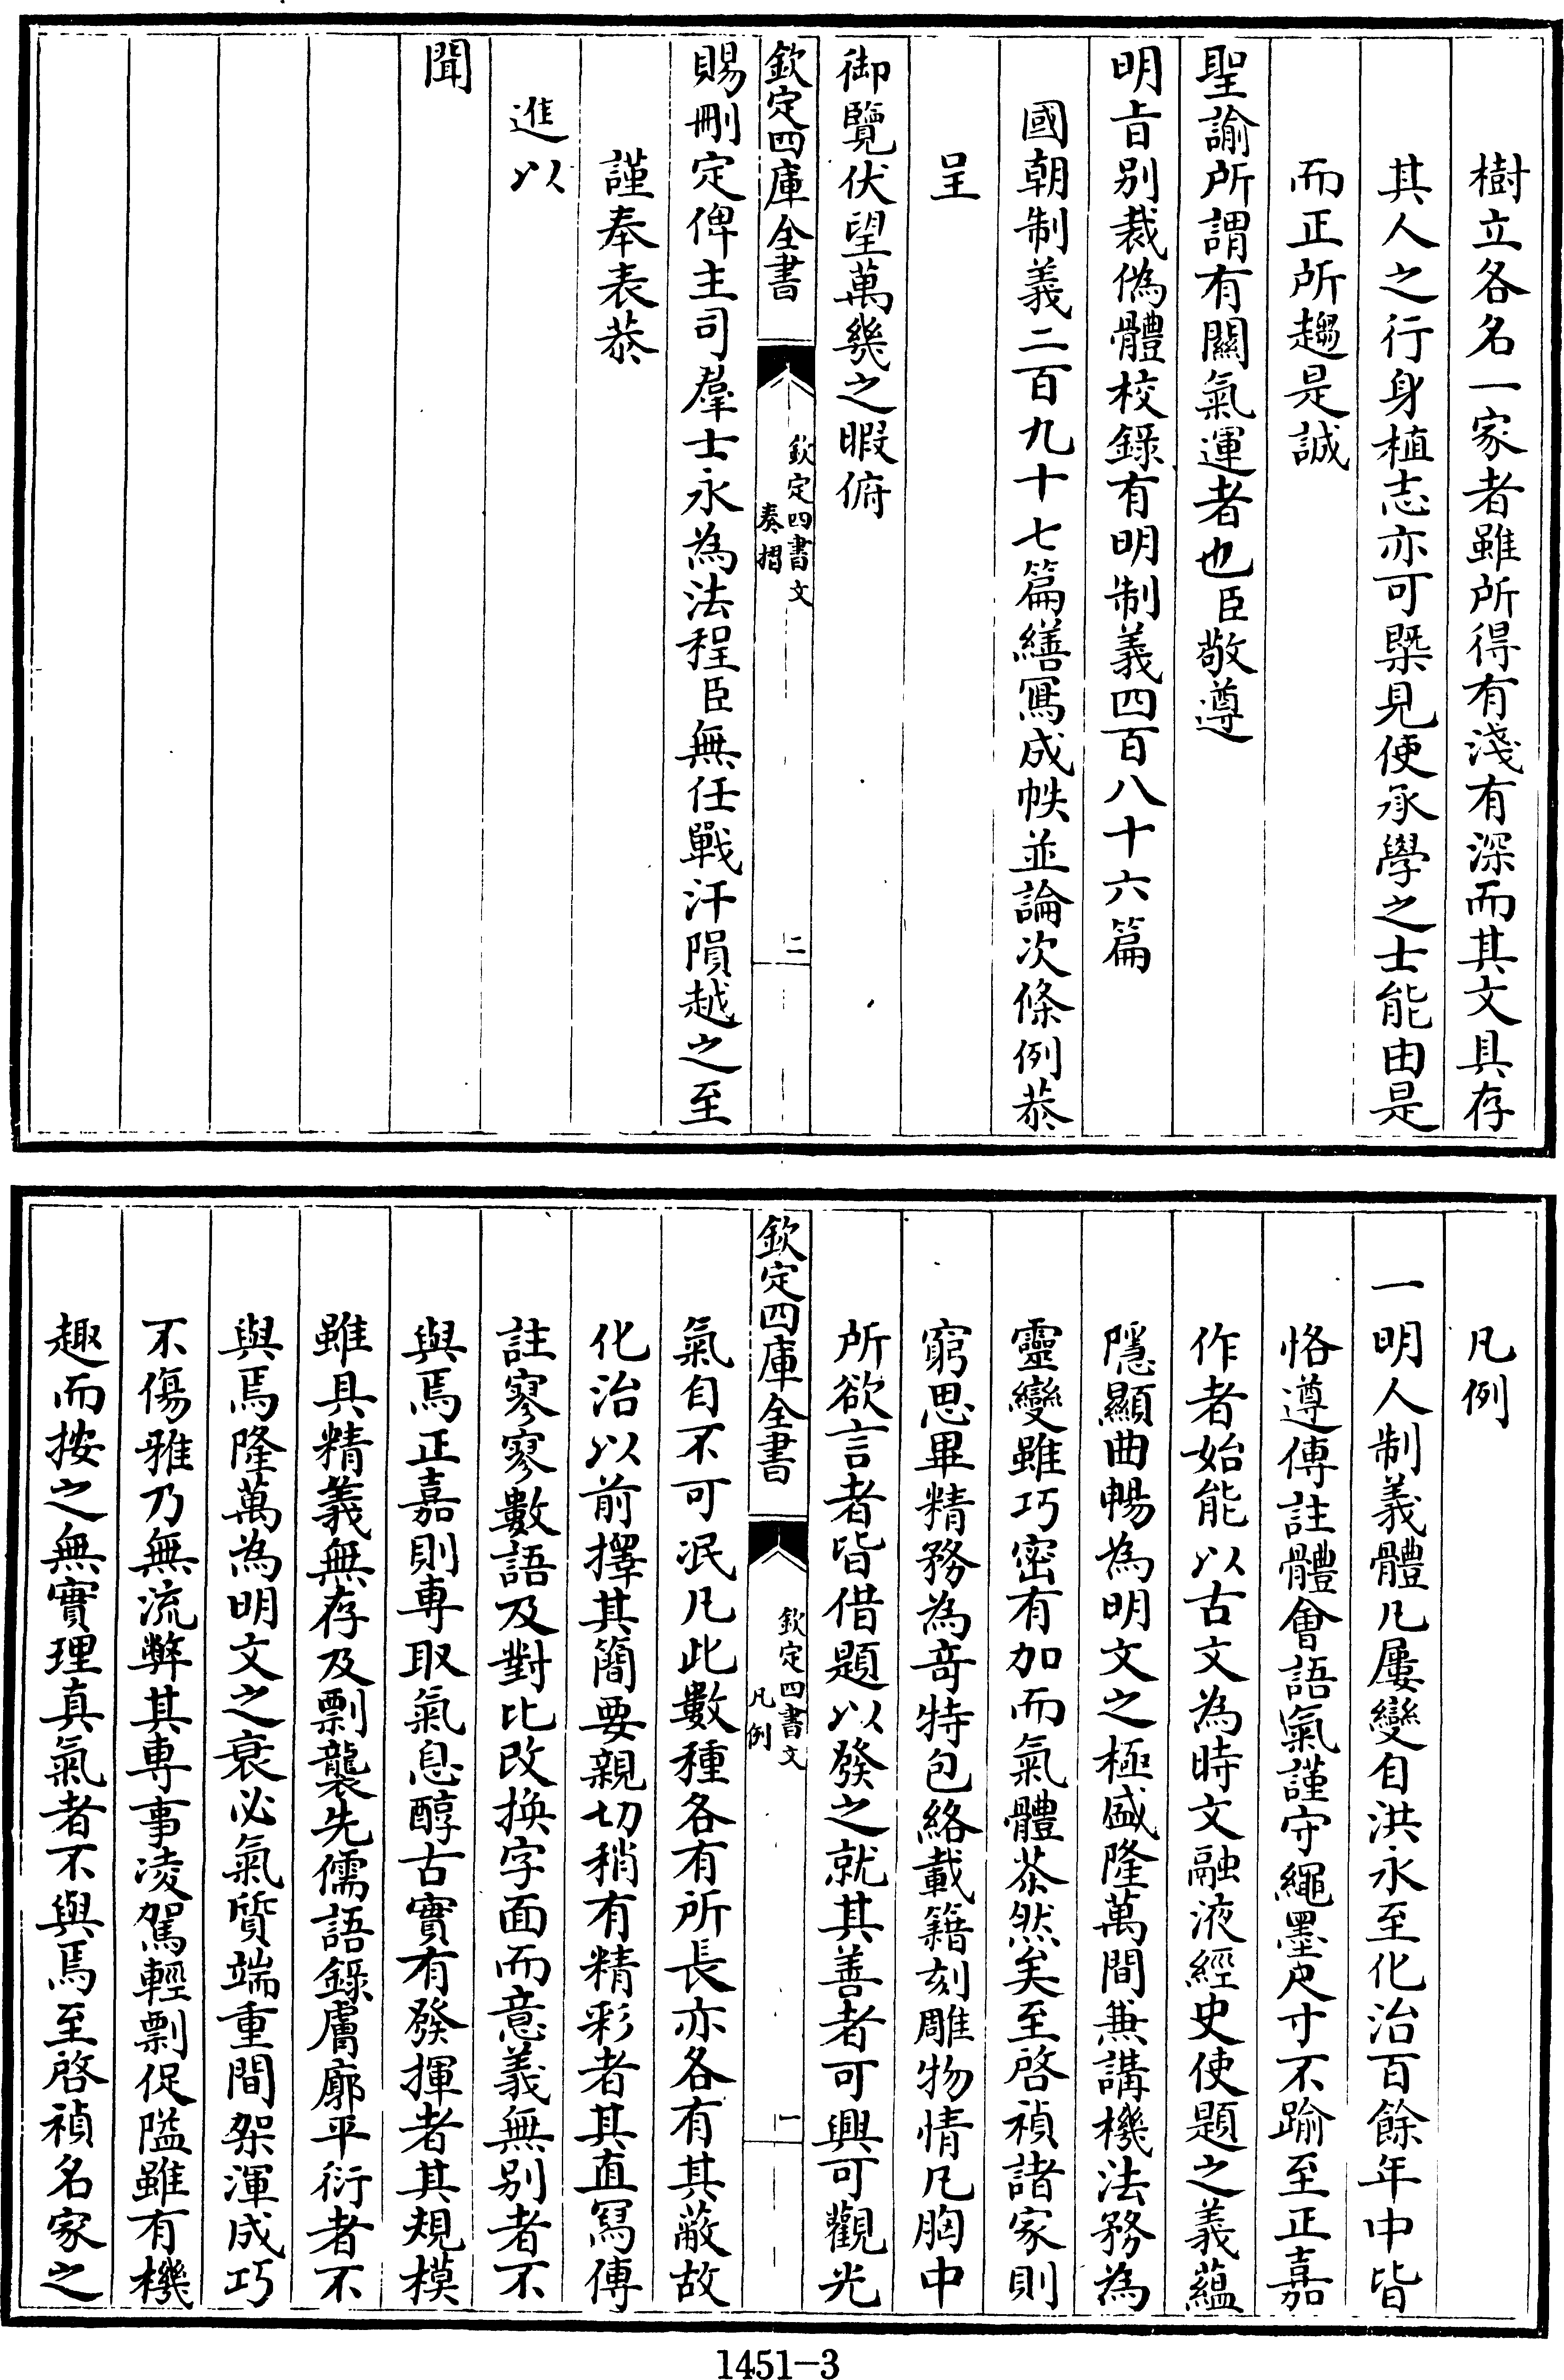 樹立各名一家者雖所得有淺有深而其文具存
其人之行身植志亦可槩見使承學之士能由是
而正所趨是誠
聖諭所謂有關氣運者也臣敬遵
明㫖别裁偽體校錄有明制義四百八十六篇
國朝制義二百九十七篇繕寫成帙並論次條例恭
呈
御覽伏望萬幾之暇俯
欽定四庫全書
欽定四書文
奏摺
二
賜刪定俾主司羣士永為法程臣無任戰汗隕越之至
謹奉表恭
進以
聞
凡例
一明人制義體凡屢變自洪永至化治百餘年中皆
恪遵傳註體會語氣謹守繩墨尺寸不踰至正嘉
作者始能以古文為時文融液經史使題之義藴
隱顯曲暢為明文之極盛隆萬間兼講機法務為
靈變雖巧密有加而氣體茶然矣至啓禎諸家則
窮思畢精務為竒特包絡載籍刻雕物情凡胸中
所欲言者皆借題以發之就其善者可興可觀光
欽定四庫全書
欽定四書文
凡例
一
氣自不可泯凡此數種各有所長亦各有其蔽故
化治以前擇其簡要親切稍有精彩者其直寫傳
註寥寥數語及對比改換字面而意義無别者不
與焉正嘉則専取氣息醇古實有發揮者其規模
雖具精義無存及剽襲先儒語錄膚廓平衍者不
與焉隆萬為明文之衰必氣質端重間架渾成巧
不傷雅乃無流弊其専事凌駕輕剽促隘雖有機
趣而按之無實理真氣者不與焉至啓禎名家之
1451-3